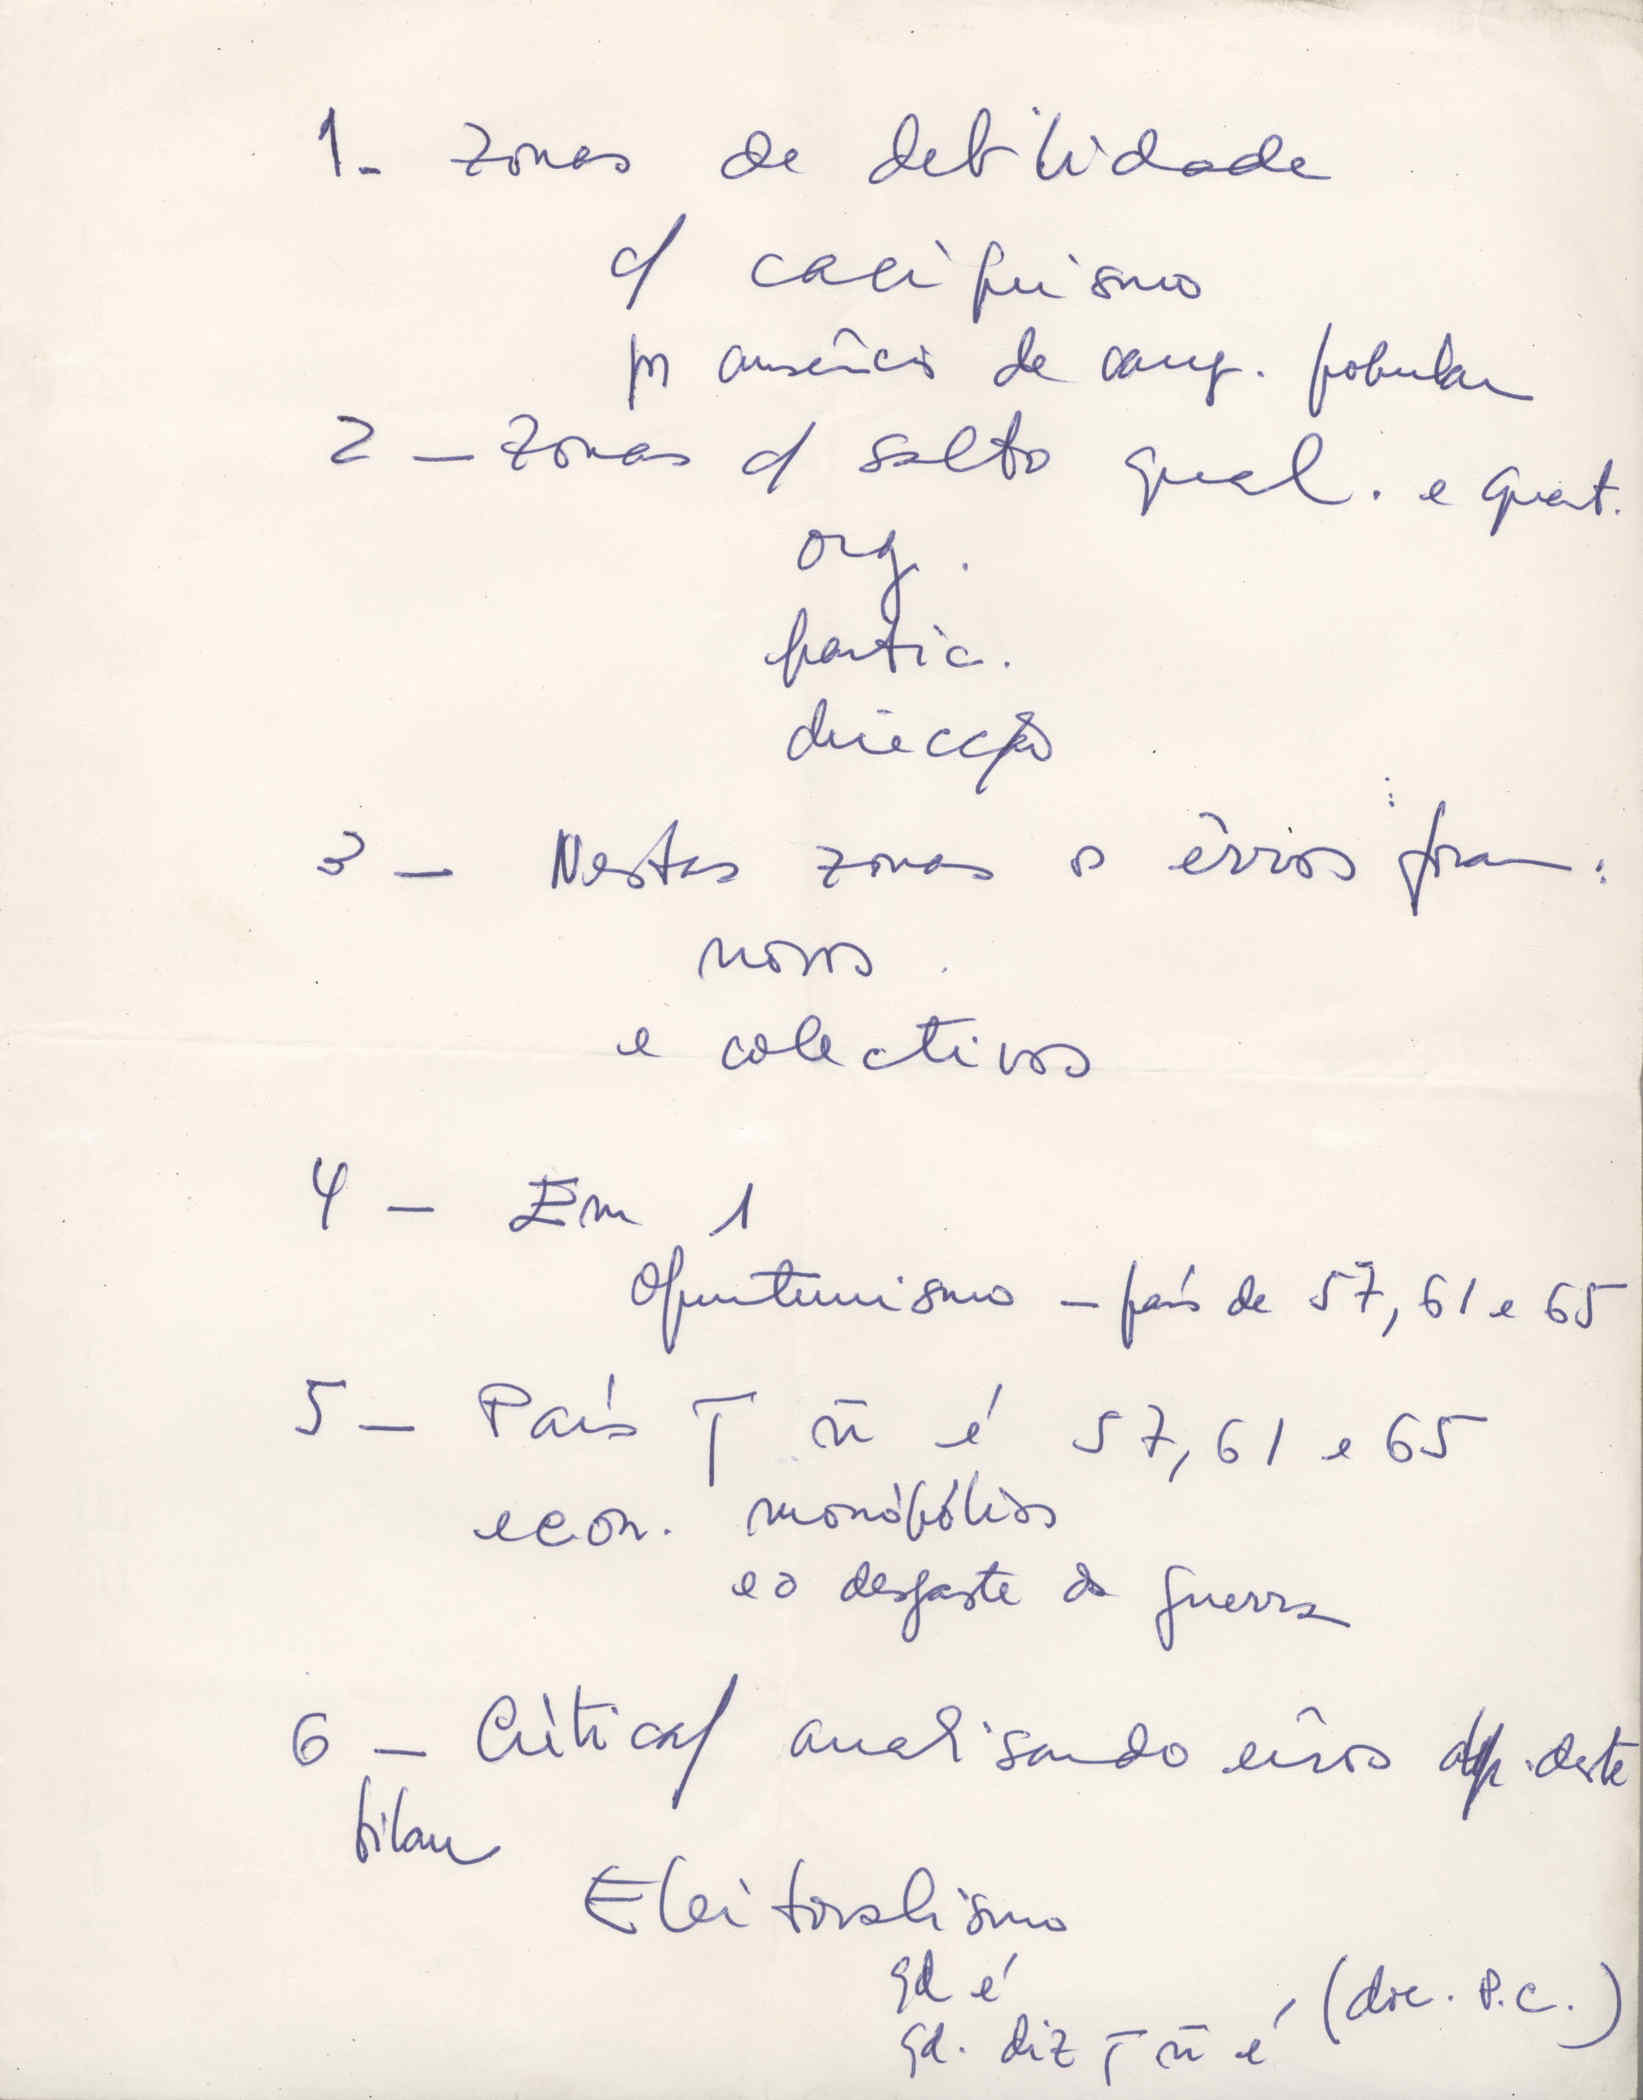 1- Zonas de debilidade
c/ caciquismo
por ausência de camp. popular
2 - Zonas c/ salto qual. e quant.
org.
partic.
direcção
3 - Nestas zonas os êrros foram:
novos
e colectivos
4 - Em 1
Oportunismo - país de 57, 61 e 65
5 - País já ñ é 57, 61 e 65
econ. monópólios
e o desgaste da guerra
6 - Críticas/ analisando êrros dp. deste
bilan
Eleitoralismo
qd é
qd. diz ñ é (doc. P.C.)